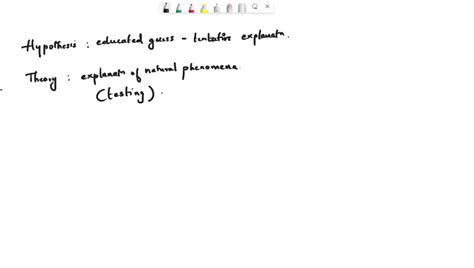 Hypothesis : educated guess - tentative explanatn.
Theory : explanatn of natural phenomena
(testing).